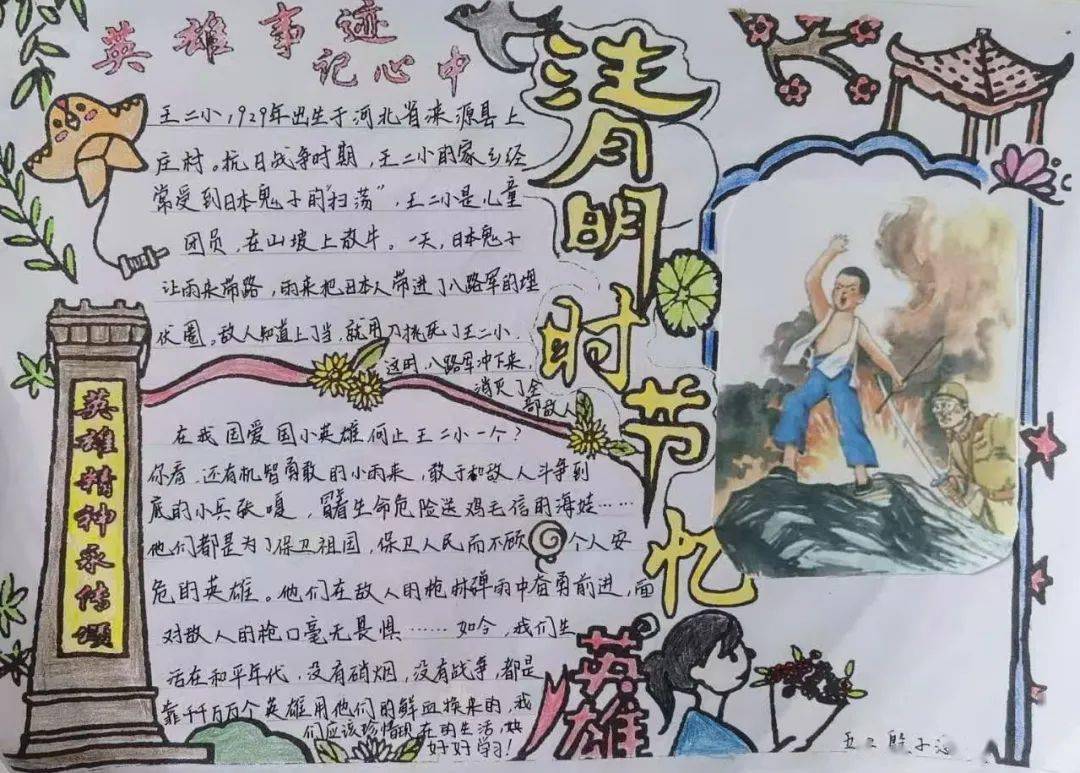 英雄事迹
记心中
王二小,1929年出生于河北省涞源县上
庄村。抗日战争时期,王二小的家乡经
常受到日本鬼子的“扫荡”,王二小是儿童
团员,在山坡上放牛。一天,日本鬼子
让雨来带路,雨来把日本人带进了八路军的埋
伏圈。敌人知道上了当,就用刀挑死了王二小。
这时,八路军冲下来,
消灭了全
部敌人
在我国爱国小英雄何止王二小一个?
你看,还有机智勇敢的小雨来,敢于和敌人斗争到
底的小兵张嘎,冒着生命危险送鸡毛信的海娃……
他们都是为了保卫祖国,保卫人民而不顾个人安
危的英雄。他们在敌人的枪林弹雨中奋勇前进,面
对敌人的枪口毫无畏惧……如今,我们生
活在和平年代,没有硝烟,没有战争,都是
靠千千万万个英雄用他们的鲜血换来的,我
们应该珍惜现在的生活,
好好学习!
清明时节忆
英雄
英雄精神永传颂
五二